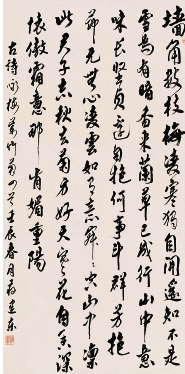 墙角数枝梅凌寒独自开遥知不是
雪为有暗香来兰草已成行山中意
味长坚贞还自抱何事斗群芳抱
节元无心凌云如有意寂寂空山中凛
此君子志秋去菊方好天寒花自香深
怀傲霜意那肯媚重阳
古诗咏梅兰竹菊四首壬辰春月建东